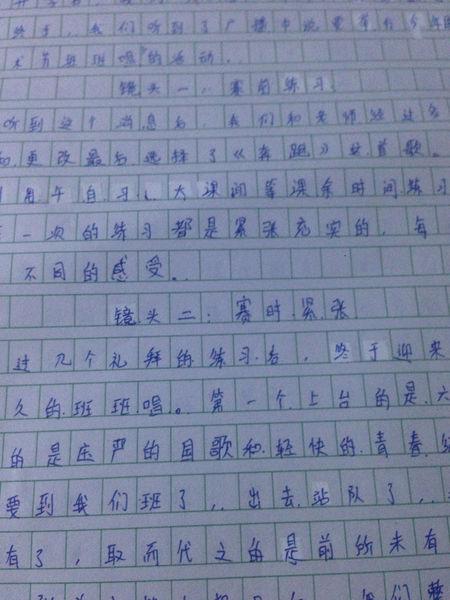 终于，我们听到了广播中说要举行今年的
术节班班唱的活动。
镜头一：赛前练习
听到这个消息后，我们和老师经过多
的更改最后选择了《奔跑》这首歌。
用午自习、大课间等课余时间练习
一次的练习都是紧张充实的，每
不同的感受。
镜头二：赛时紧张
过几个礼拜的练习后，终于迎来
久的班班唱。第一个上台的是六
的是庄严的国歌和轻快的青春
要到我们班了，出去站队了，
有了，取而代之的是前所未有
我们整